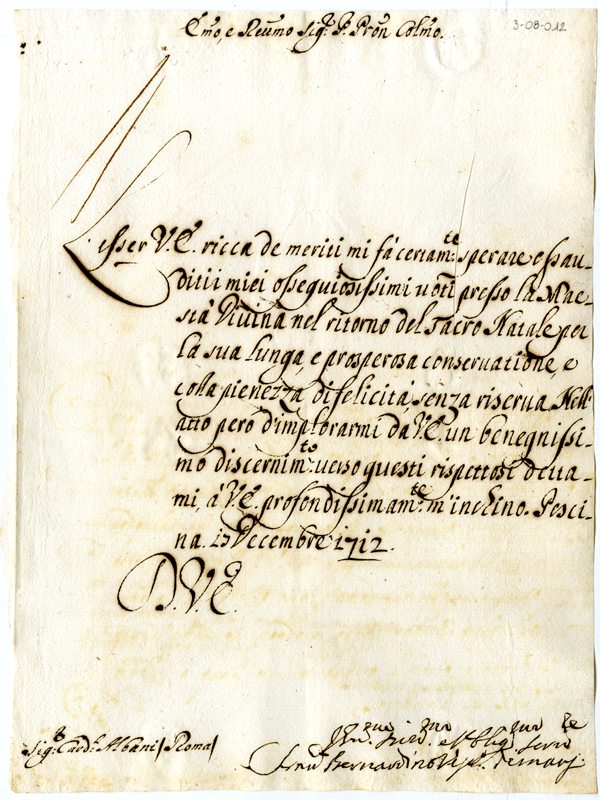 Emo, e Reumo Sig.r P. Pron Colmo.
3-08-012
L'esser V.E. ricca de meriti mi fà certam.te sperare essau-
diti i miei ossequiosissimi uoti presso la Mae-
stà Diuina nel ritorno del sacro Natale per
la sua lunga, e prosperosa conseruatione, e
colla pienezza di felicità, senza riserua. Nell'
atto però d'implorarmi da V.E. un benegnissi-
mo discernim.to uerso questi rispettosi detta-
mi, à V.E. profondissimam.te m'inchino. Pesci-
na. 13 Decembre 1712.
D.V.E.
Sig.r Card.l Albani / Roma /
Bernardino